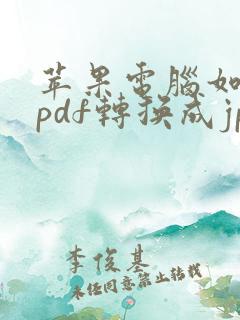 苹果電腦如
pdf轉換成jp
李俊基
未经同意禁止转载